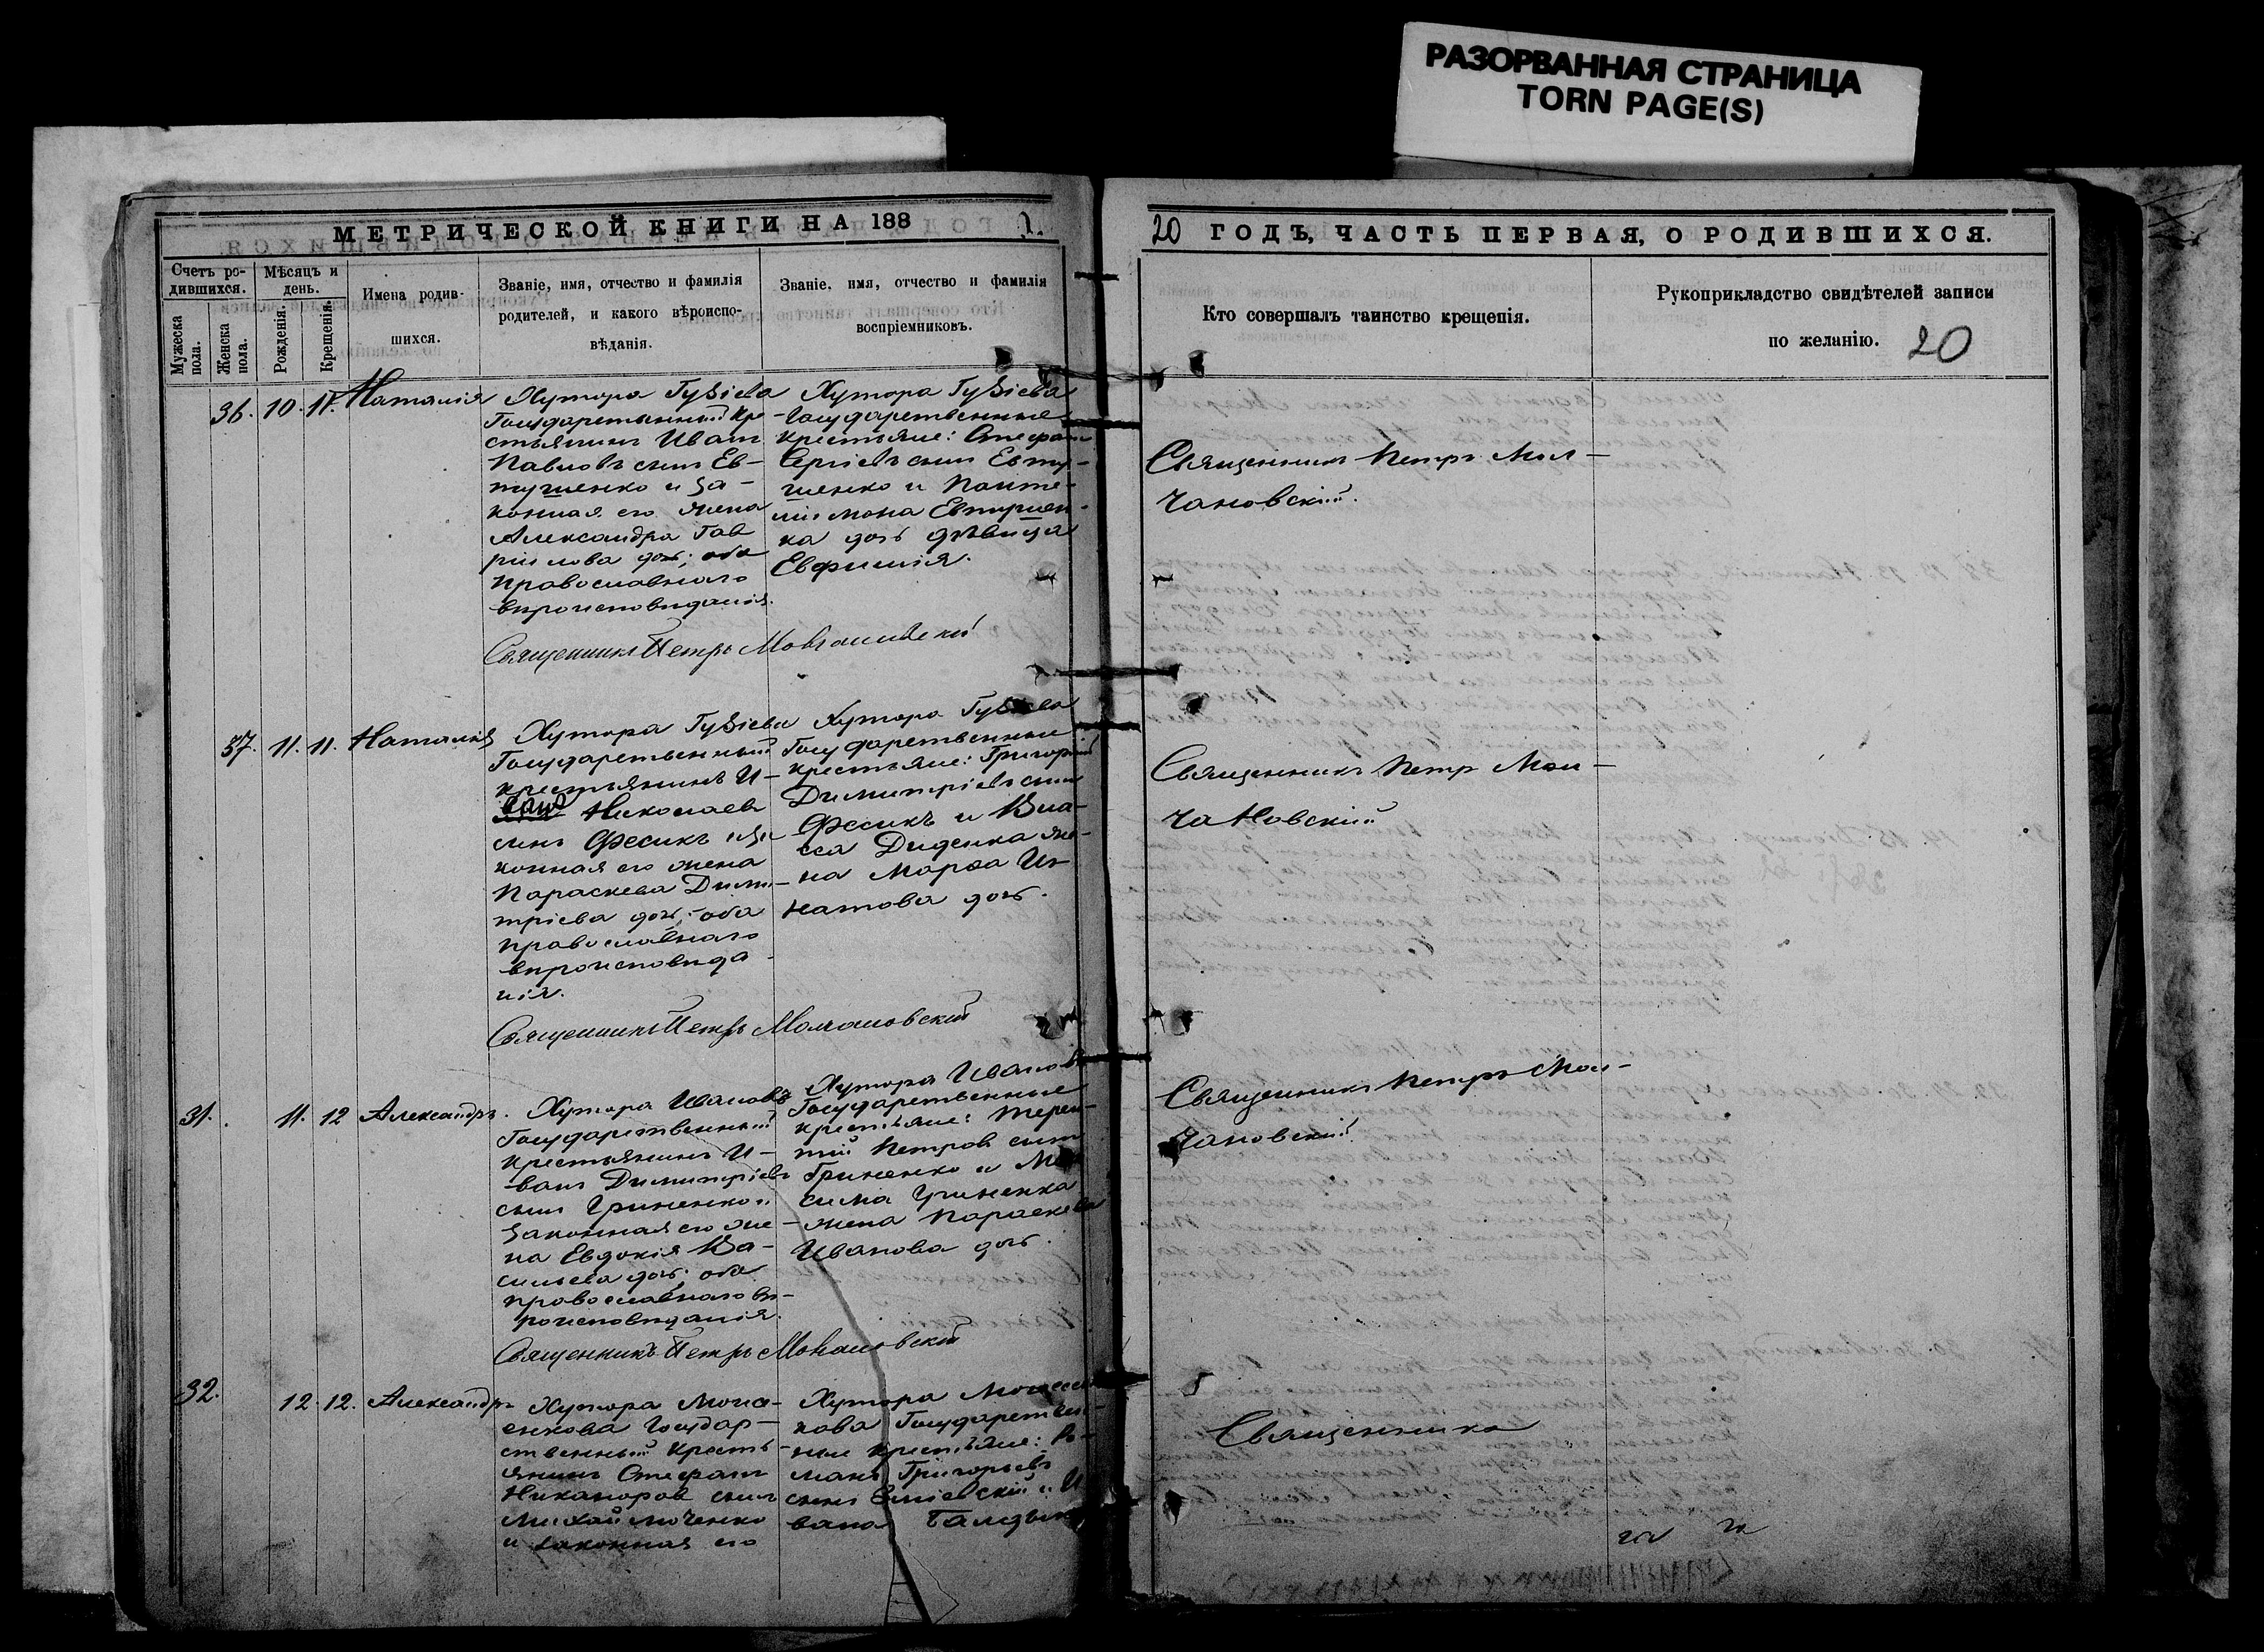 РАЗОРВАННАЯ СТРАНИЦА
TORN PAGE(S)
МЕТРИЧЕСКОЙ КНИГИ НА 188
Счетъ ро-
дившихся.
Мужеска
пола.
Женска
пола.
Мѣсяцъ и
день.
Рожденія.
Крещенія.
Имена родив-
шихся.
Званіе, имя, отчество и фамилія
родителей, и какого вѣроиспо-
вѣданія.
Званіе, имя, отчество и фамилія
воспріемниковъ.
36. 10. 11. Наталія
Хутора Губіева
Государственный кре
стьянинъ Иванъ
Павловъ сынъ Ев-
тушенко и за-
конная его жена
Александра Гав
рiилова дочь; оба
православнаго
вѣроисповѣданія.
Хутора Губіева
Государственные
крестьяне: Стефанъ
Сергіевъ сынъ Евту-
шенко и Панте-
лiимона Евтушен-
ка дочь дѣвица
Евфимія.
Священникъ Петръ Молчановскій
37. 11. 11. Наталія
Хутора Губіева
Государственный
крестьянинъ И-
ванъ Николаевъ
сынъ Фесикъ и за
конная его жена
Параскева Дими-
тріева дочь; оба
православнаго
вѣроисповѣда
нія.
Хутора Губіева
Государственные
крестьяне: Григорій
Димитріевъ сынъ
Фесикъ и Вла-
сса Диденка же-
на Марѳа Иг
натова дочь.
Священникъ Петръ Молчановскій
31. 11. 12 Александръ.
Хутора Иванова
Государственный
крестьянинъ И-
ванъ Димитріевъ
сынъ Гриненко и
законная его же-
на Евдокія Ва-
сильева дочь; оба
православнаго вѣ-
роисповѣданія.
Хутора Иванова
Государственные
крестьяне: Терен-
тій Петровъ сынъ
Гриненко и Мак
сима Гриненка
жена Параскева
Иванова дочь.
Священникъ Петръ Молчановскій
32. 12. 12. Александръ
Хутора
Государ-
ственный кресть-
янинъ Стефанъ
Никаноровъ сынъ
Михайличенко
и законная его
Хутора
Государствен-
ные крестьяне: Ро-
манъ Григорьевъ
сынъ Зміевскій и И
вана
20 ГОДЪ, ЧАСТЬ ПЕРВАЯ, О РОДИВШИХСЯ.
Кто совершалъ таинство крещенія.
Рукоприкладство свидѣтелей записи
по желанію.
20
Священникъ Петръ Мол-
чановскій.
Священникъ Петръ Мол-
чановскій
Священникъ Петръ Мол-
чановскій
Священника